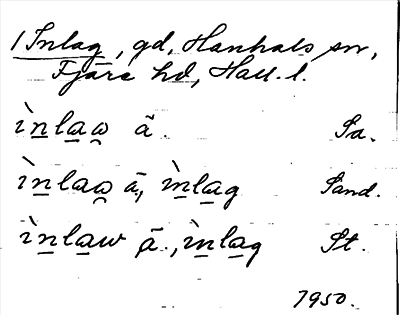 1 Inlag, gd, Hanhals sn,
Fjäre hd, Hall. l.
ìnlaw ā. Sa.
ìnlaw ā, ìnlag Sand.
ìnlaw ā., ìnlag St.
1950.